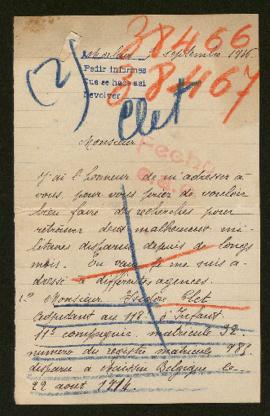 38466
38467
(2)
septembre 1916
Pedir informes
Que se hase asi
Devolver
Clet
Monsieur
J'ai l'honneur de m'adresser à
vous, pour vous prier de vouloir
bien faire des recherches pour
retrouver deux malheureux mi-
litaires disparus depuis de longs
mois. En vain je me suis a-
dressé à différentes agences.
1º Monsieur Clet
Adjudant au 11e d'Infant.
11e compagnie, matricule
numero du registre matricule 483.
disparu à Maissin Belgique le
22 août 1914.